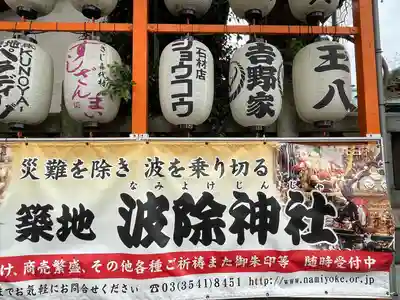 KUNOYA
すしざんまい
石材店
ジョウコウ
吉野家
王八
災難を除き 波を乗り切る
なみよけじんじ
築地 波除神社
け、商売繁盛、その他各種ご祈祷また御朱印等 随時受付中
までお気軽にお問合せください ☎03(3541)8451 http://www.namiyoke.or.jp